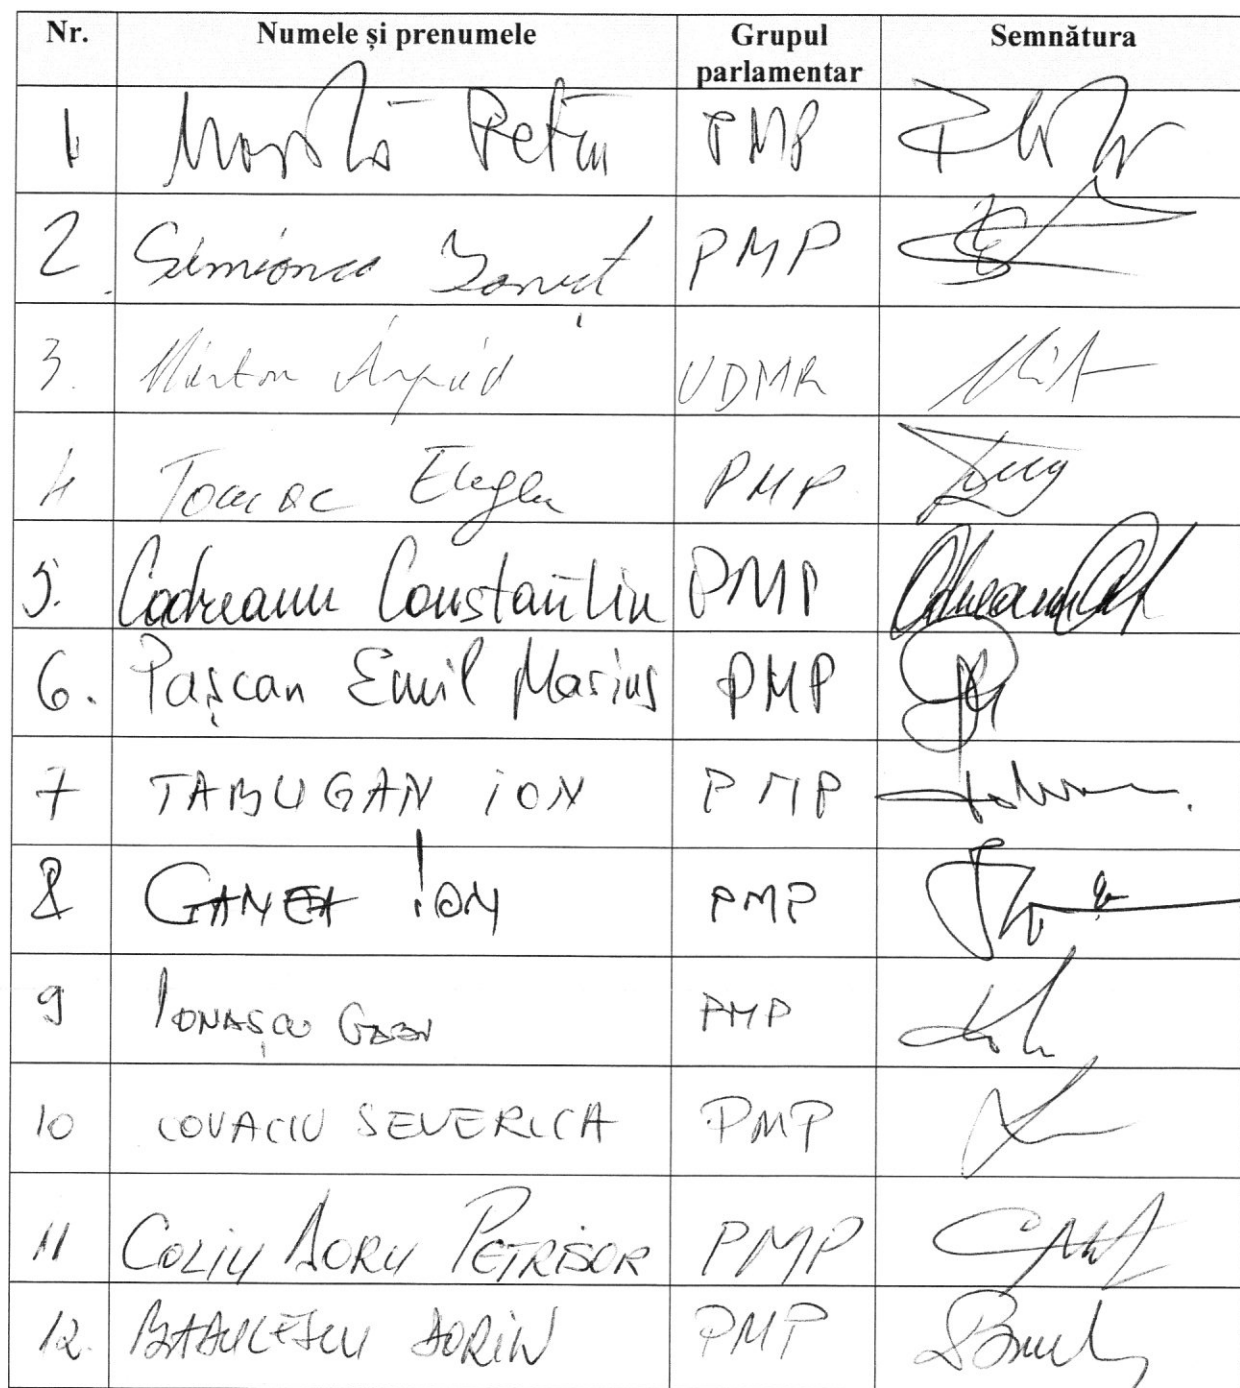 Nr. Numele și prenumele Grupul parlamentar Semnătura
1 Movilă Petru PMP
2. Simionca Ionuț PMP
3. Márton Árpád UDMR
4 Tomac Eugen PMP
5. Codreanu Constantin PMP Codreanu
6. Pașcan Emil Marius PMP
7 TABUGAN ION PMP
8 GANEA ION PMP
9 IONAȘCU GABI PMP
10 COVACIU SEVERICA PMP
11 COLIU DORU PETRISOR PMP
12. DORIN PMP